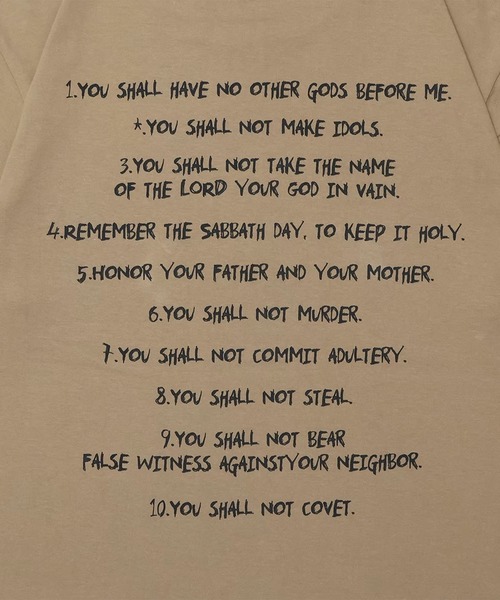 1.YOU SHALL HAVE NO OTHER GODS BEFORE ME.
*.YOU SHALL NOT MAKE IDOLS.
3.YOU SHALL NOT TAKE THE NAME
OF THE LORD YOUR GOD IN VAIN.
4.REMEMBER THE SABBATH DAY, TO KEEP IT HOLY.
5.HONOR YOUR FATHER AND YOUR MOTHER.
6.YOU SHALL NOT MURDER.
7.YOU SHALL NOT COMMIT ADULTERY.
8.YOU SHALL NOT STEAL.
9.YOU SHALL NOT BEAR
FALSE WITNESS AGAINSTYOUR NEIGHBOR.
10.YOU SHALL NOT COVET.